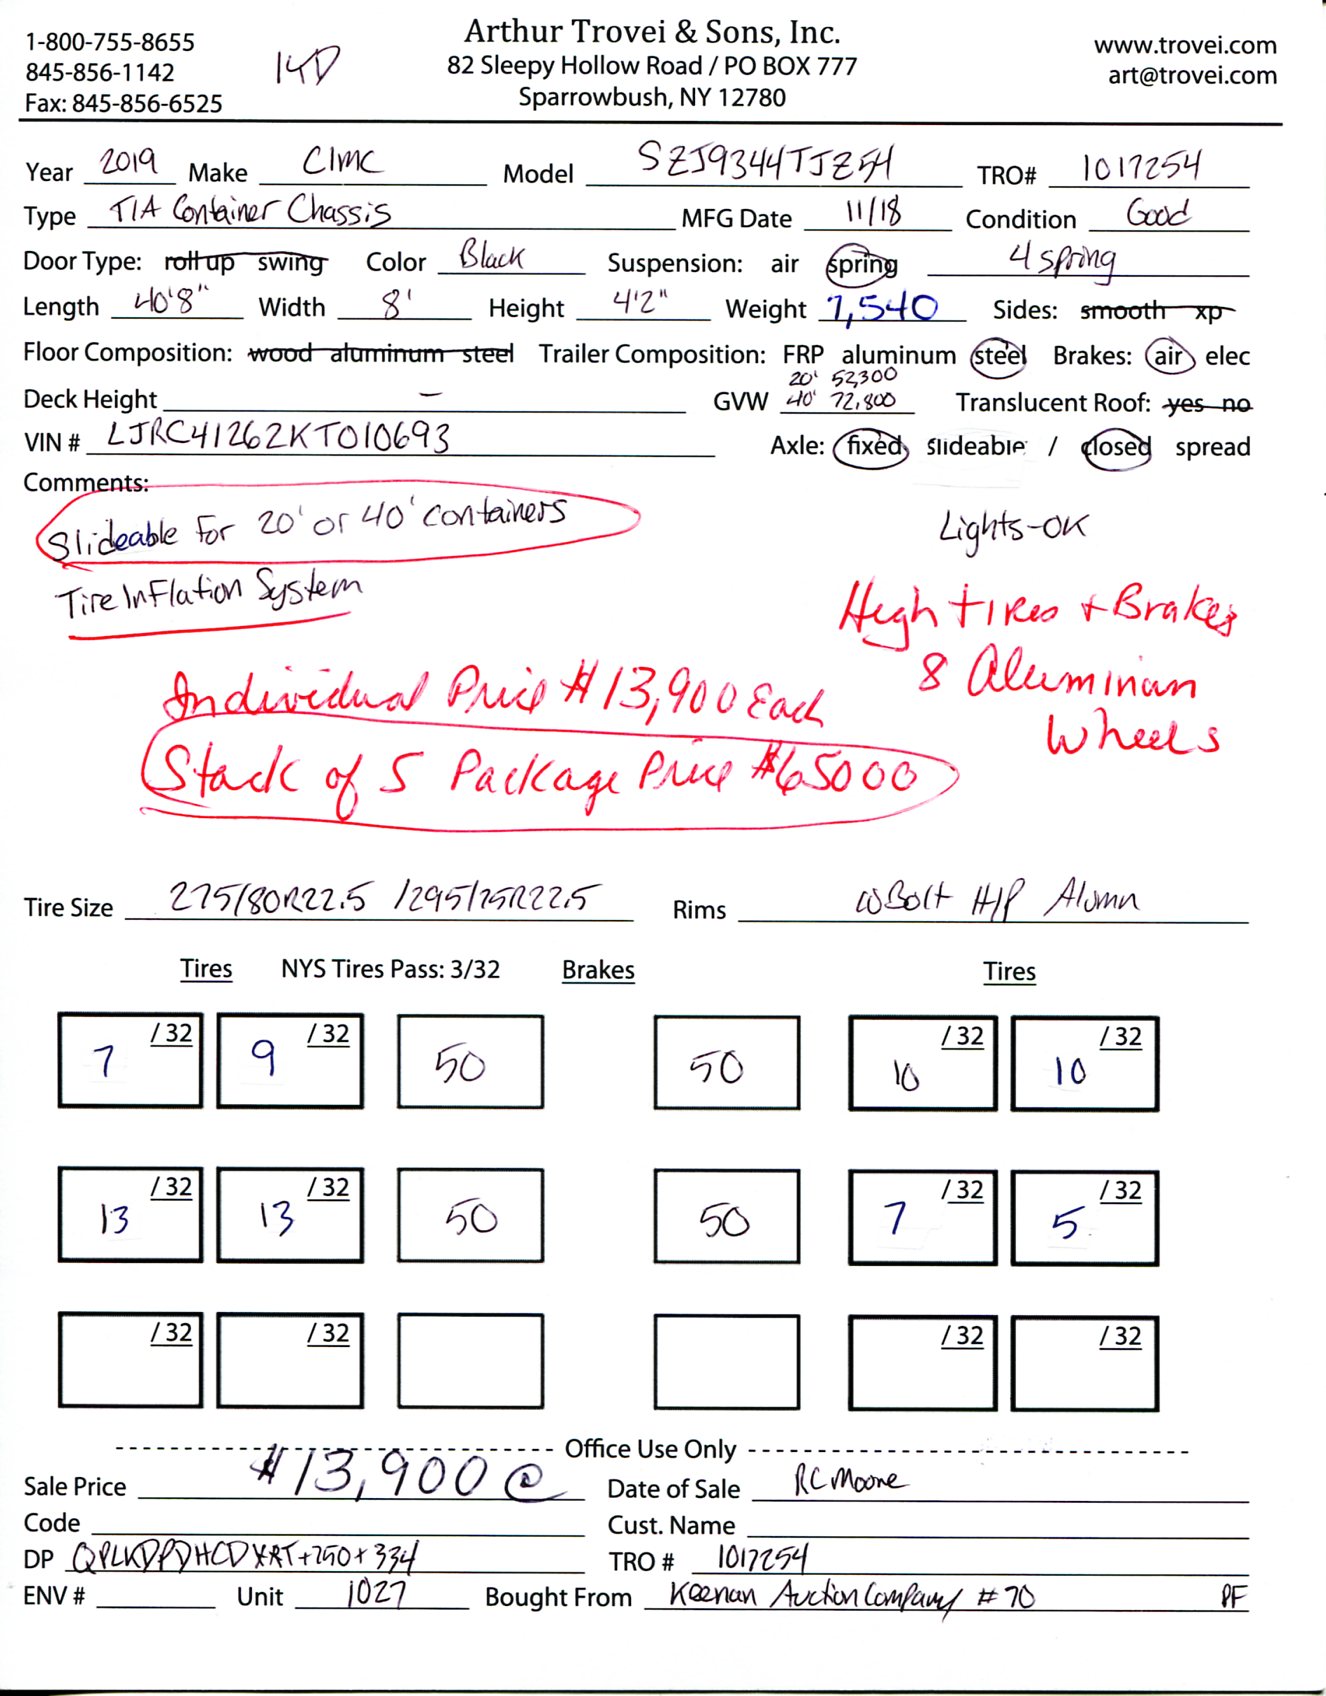 1-800-755-8655
845-856-1142
Fax: 845-856-6525
14D
Arthur Trovei & Sons, Inc.
82 Sleepy Hollow Road / PO BOX 777
Sparrowbush, NY 12780
www.trovei.com
art@trovei.com
Year 2019 Make CIMC Model SZJ9344TJZ5H TRO# 1017254
Type T/A Container Chassis MFG Date 11/18 Condition Good
Door Type: roll up swing Color Black Suspension: air spring 4 spring
Length 40'8" Width 8' Height 4'2" Weight 7,540 Sides: smooth xp
Floor Composition: wood aluminum steel Trailer Composition: FRP aluminum steel Brakes: air elec
Deck Height – GVW 20' 52,300 40' 72,800 Translucent Roof: yes no
VIN # LJRC41262KT010693 Axle: fixed slideable / closed spread
Comments:
Slideable for 20' or 40' containers
Lights-OK
Tire Inflation System
High tires + Brakes
8 Aluminum
Wheels
Individual Price $13,900 Each
Stack of 5 Package Price $65000
Tire Size 275/80R22.5 /295/75R22.5 Rims 10 Bolt H/P Alumn
Tires NYS Tires Pass: 3/32 Brakes Tires
7 /32 9 /32 50 50 10 /32 10 /32
13 /32 13 /32 50 50 7 /32 5 /32
/32 /32 /32 /32
Office Use Only
Sale Price $13,900 @ Date of Sale RC Moore
Code Cust. Name
DP TRO # 1017254
ENV # Unit 1027 Bought From Keenan Auction Company #70 PF